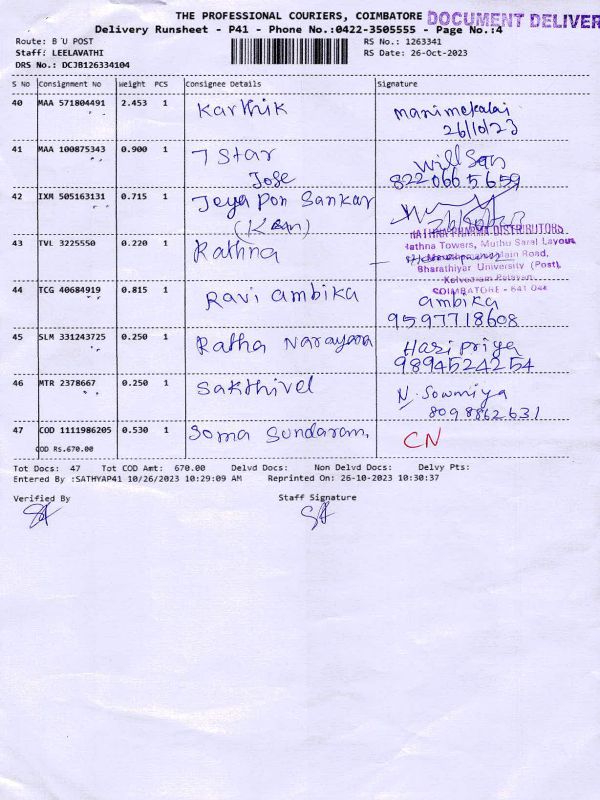 THE PROFESSIONAL COURIERS, COIMBATORE DOCUMENT DELIVER
Delivery Runsheet - P41 - Phone No.:0422-3505555 - Page No.:4
Route: B U POST RS No.: 1263341
Staff: LEELAVATHI RS Date: 26-Oct-2023
DRS No.: DCJB126334104
S No Consignment No Weight PCS Consignee Details Signature
40 MAA 571804491 2.453 1 Karthik Manimekalai
26/10/23
41 MAA 100875343 0.900 1 7 Star Willson
Jose 8220665659
42 IXM 505163131 0.715 1 Jeya Pon Sankar
RATHNA PHARMA DISTRIBUTORS
43 TVL 3225550 0.220 1 Rathna Rathna Towers, Muthu Saral Layout
Main Road,
Bharathiyar University (Post),
COIMBATORE - 641 046
44 TCG 40684919 0.815 1 Ravi ambika ambika
9597718608
45 SLM 331243725 0.250 1 Ratha Narayana Hari priya
9894524254
46 MTR 2378667 0.250 1 Sakthivel N. Sowmiya
8098862631
47 COD 1111986205 0.530 1 Soma Sundaram. CN
COD Rs.670.00
Tot Docs: 47 Tot COD Amt: 670.00 Delvd Docs: Non Delvd Docs: Delvy Pts:
Entered By :SATHYAP41 10/26/2023 10:29:09 AM Reprinted On: 26-10-2023 10:30:37
Verified By Staff Signature